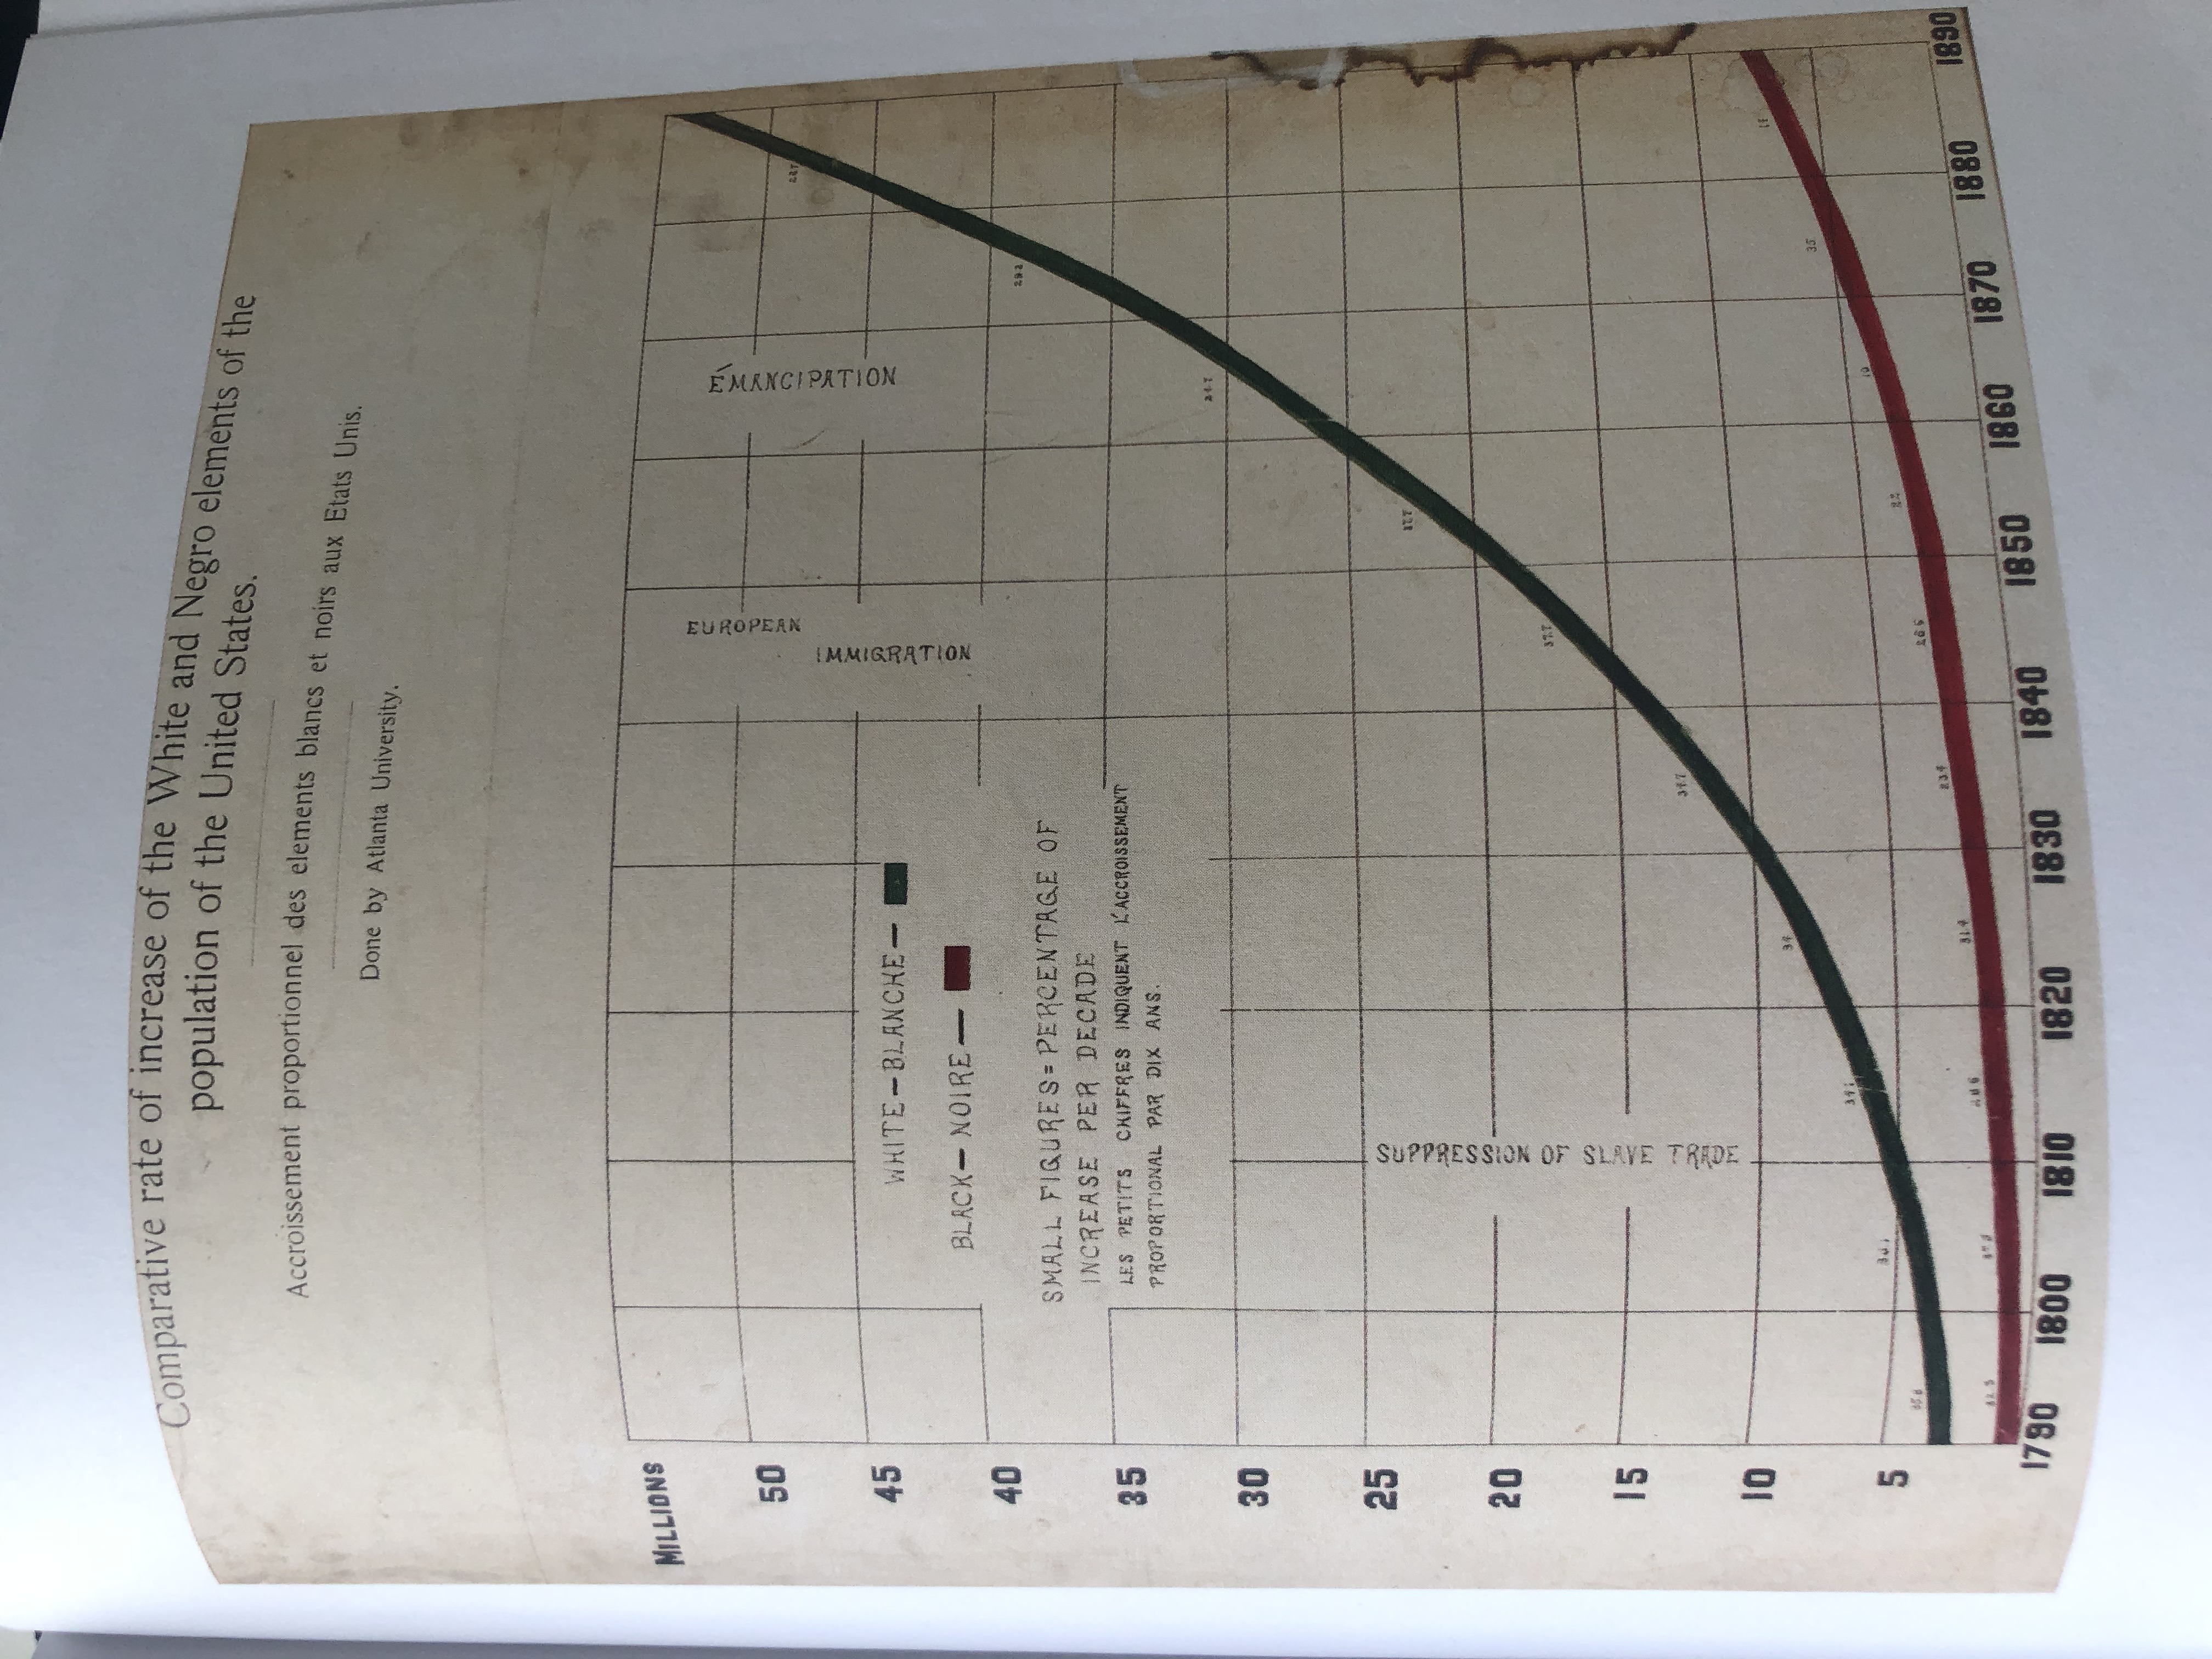 Comparative rate of increase of the White and Negro elements of the
population of the United States.
Accroissement proportionnel des elements blancs et noirs aux Etats Unis.
Done by Atlanta University.
MILLIONS
50
45
40
35
30
25
20
15
10
5
EUROPEAN
IMMIGRATION
ÉMANCIPATION
WHITE—BLANCHE—
BLACK—NOIRE—
SMALL FIGURES=PERCENTAGE OF
INCREASE PER DECADE
LES PETITS CHIFFRES INDIQUENT L'ACCROISSEMENT
PROPORTIONAL PAR DIX ANS.
SUPPRESSION OF SLAVE TRADE
29.2
37.7
37.7
34.7
34
35
22
31.4
23.4
26.6
1790
1800
1810
1820
1830
1840
1850
1860
1870
1880
1890